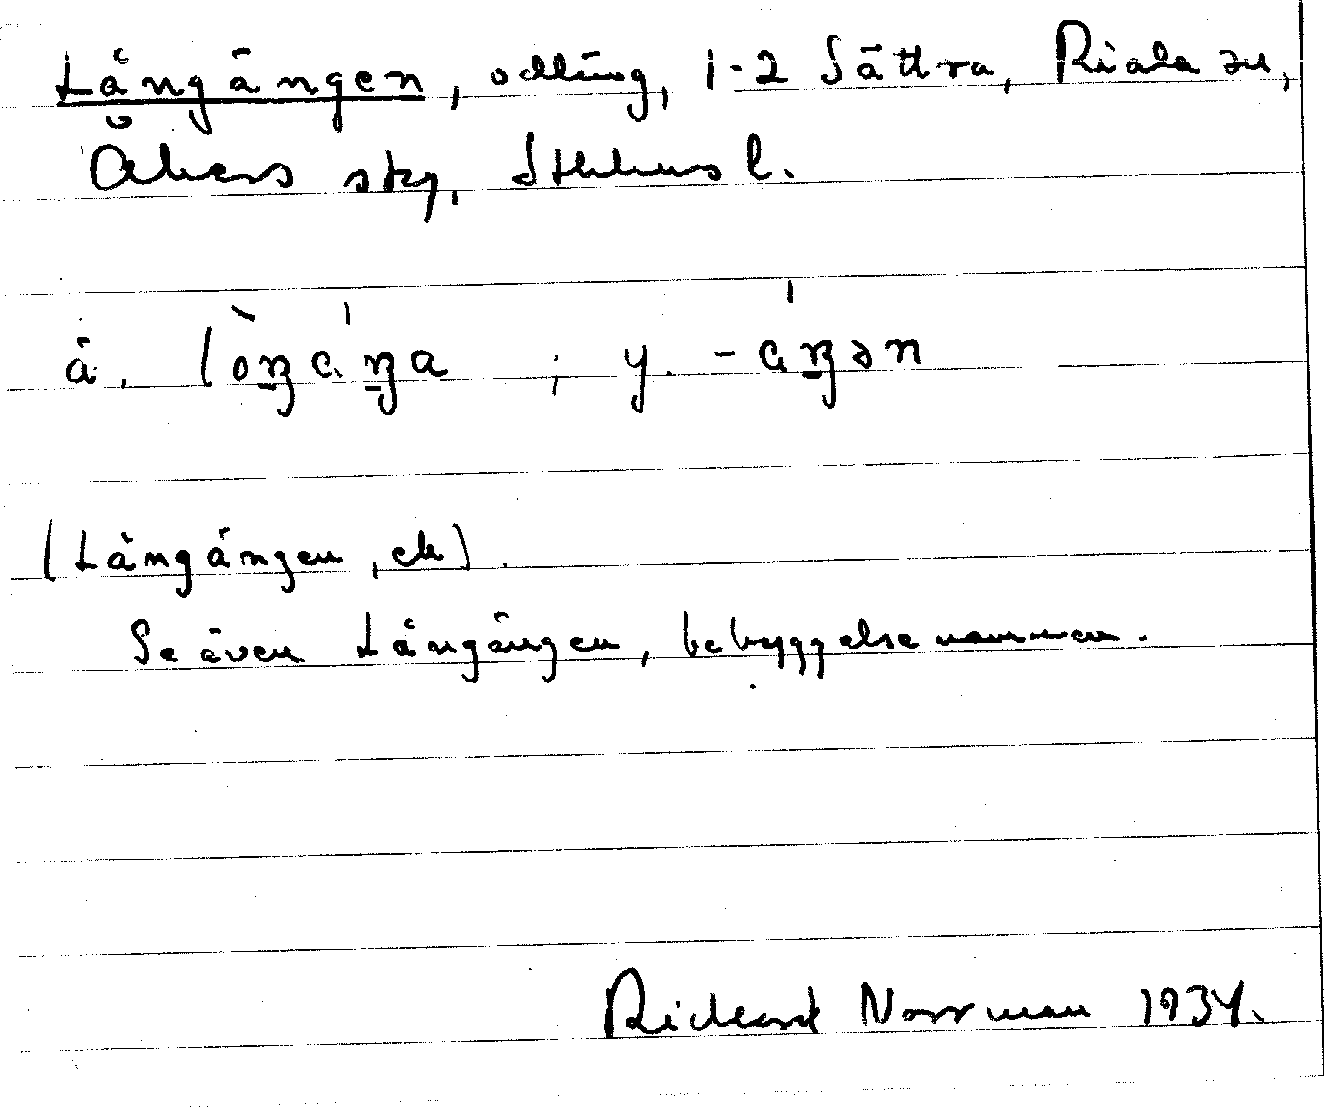 Långängen, odling, 1-2 Sättra, Riala sn,
Åkers skg, Sthlms l.
ä. lòŋa̍ŋa ; y. -a̍ŋən
(Långängen, ek).
Se även Långängen, bebyggelsenamnen.
Rickard Norrman 1934.